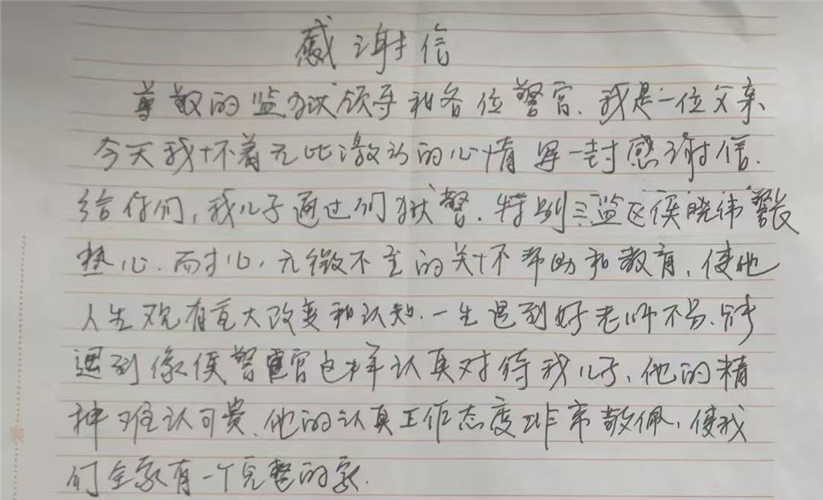 感谢信
尊敬的监狱领导和各位警官、我是一位父亲、
今天我怀着无比激动的心情写一封感谢信.
给你们,我儿子通过们狱警.特别三监区侯晓伟警长
热心.而才心,无微不至的关怀帮助和教育,使他
人生观有重大改变和认知.一生遇到好老师不易、能
遇到像侯警官这样认真对待我儿子、他的精
神难认可贵、他的认真工作态度非常敬佩,使我
们全家有一个完整的家.